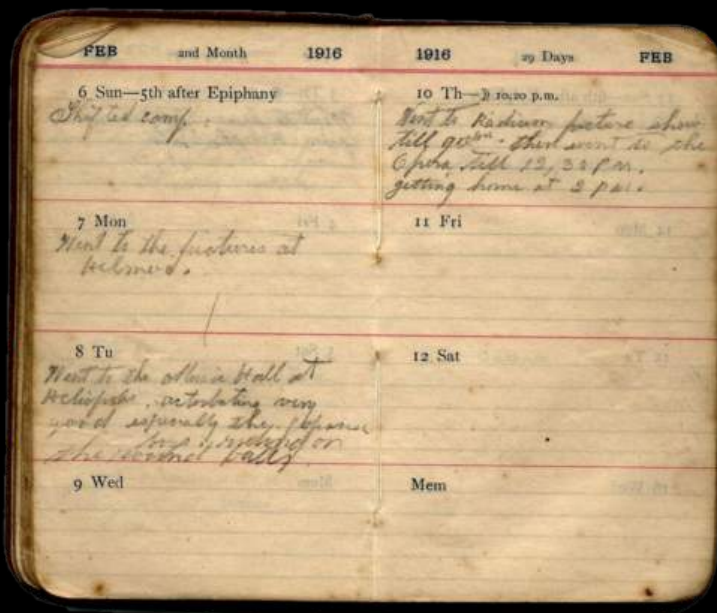 FEB 2nd Month 1916
6 Sun—5th after Epiphany
Shifted camp.
7 Mon
Went to the pictures at
8 Tu
Went to the Music Hall at
Heliopolis. acrobating very
good especially the Japanese
on
the round balls.
9 Wed
1916 29 Days FEB
10 Th—☽ 10.20 p.m.
Went to Radium picture show
till then went to the
Opera till 12,30 P.M.
getting home at 2 p.m.
11 Fri
12 Sat
Mem